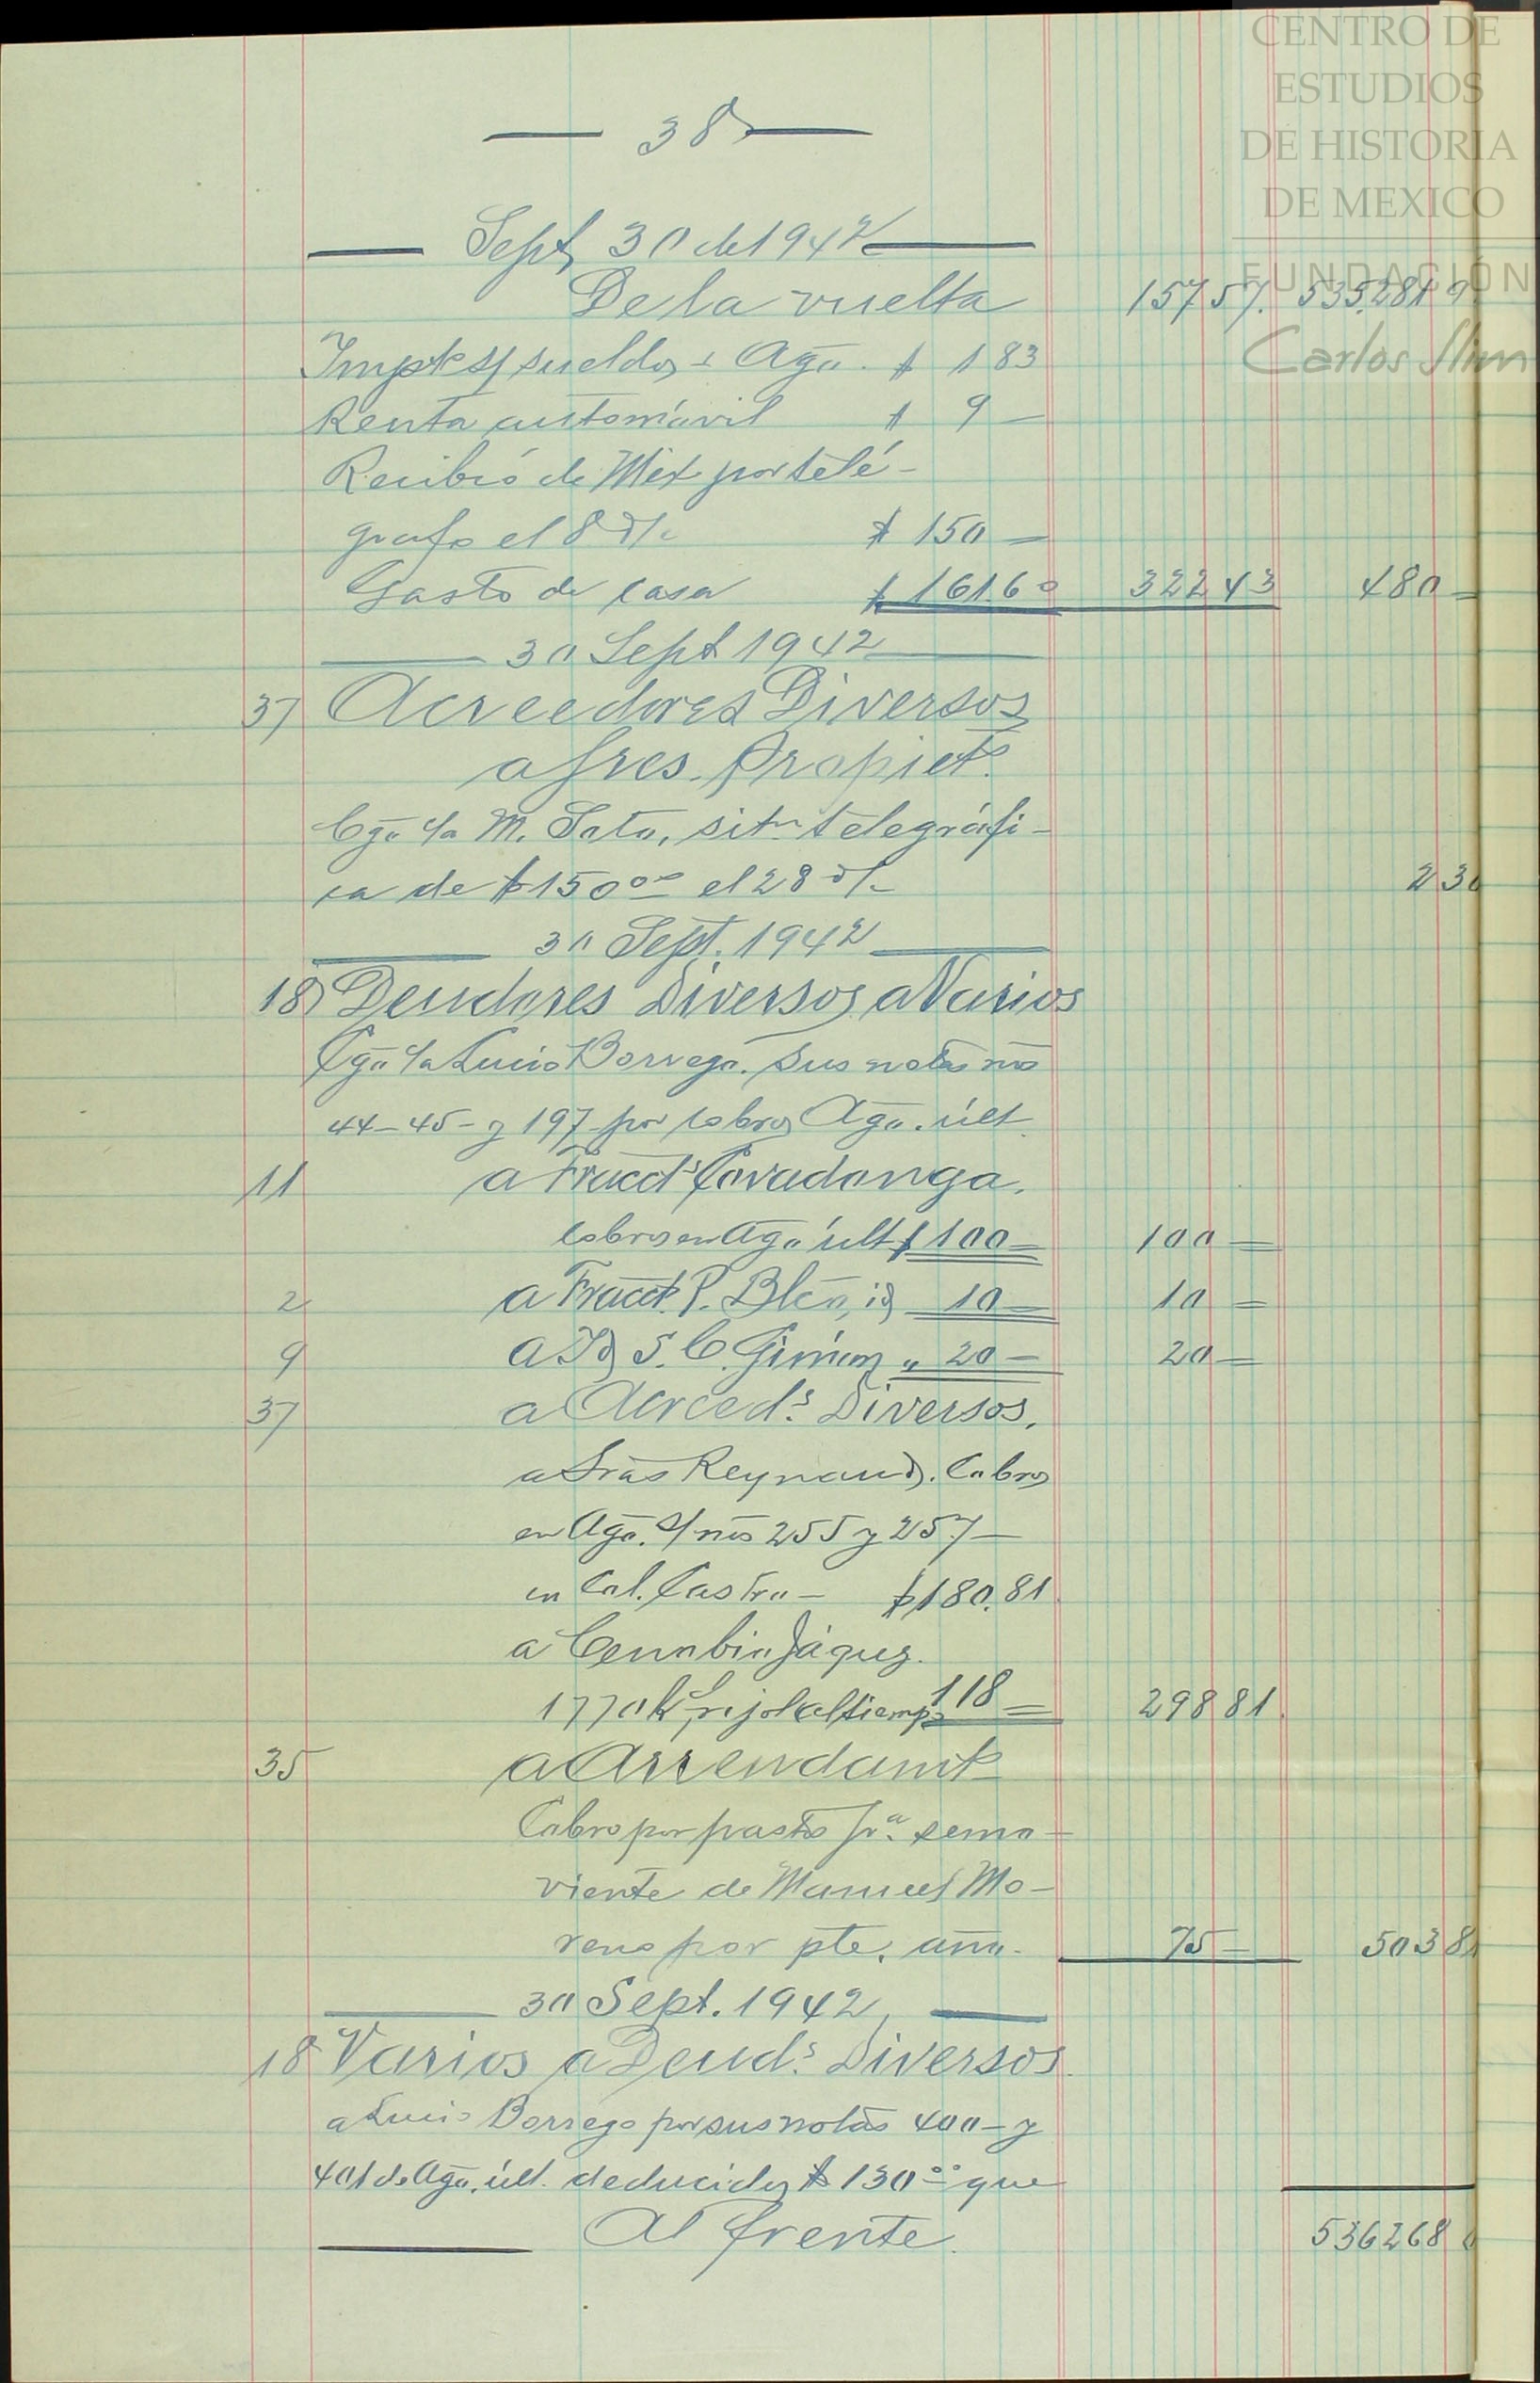 CENTRO DE
ESTUDIOS
DE HISTORIA
DE MEXICO
FUNDACIÓN
Carlos Slim
— 38 —
— Sept 30 de 1942 —
De la vuelta 157 57. 535281 9
Impte s/ sueldos Ago. $ 1 83
Renta automóvil $ 9 —
Recibió de Mex por telé-
grafo el 8 $ 150 —
Gasto de casa $ 161.60 322 43 480 —
— 30 Sept 1942 —
37 Acreedores Diversos
a Sres. Propiets.
Cgo. M. Soto, sitn telegráfi-
ca de $150.00 el 28 230
— 30 Sept. 1942 —
18 Deudores Diversos a Varios
Cgo. Lucio Borrego. Sus notas nos
44-45- y 197 por cobros Ago. últ.
11 a Fracct. Covadonga.
cobros en Ago últ $ 100 — 100 —
2 a Fracct. P. Blca, id 10 — 10 —
9 a Id S. C. „ 20 — 20 —
37 a Acreeds. Diversos.
a Sras Reynaud. Cobros
en Ago. s/ nos 255 y 257 —
en Col. Castro — $180.81
a Cenobio Jáquez.
1770 k frijol al tiempo 118 — 298 81
35 a Arrendamts
Cobro por pasto pa. semo-
viente de Manuel Mo-
reno por pte. año. 75 — 503 81
— 30 Sept. 1942 —
18 Varios a Deuds. Diversos
a Lucio Borrego por sus notas 400 — y
401 de Ago. últ. deducidos $ 130.00 que
— Al frente. 536268 0